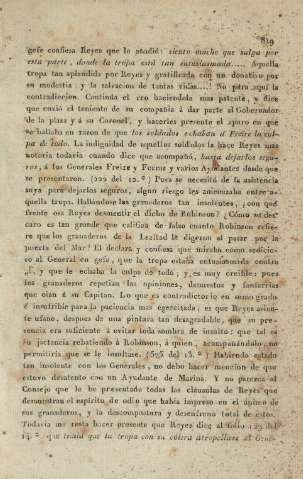 819
gefe confiesa Reyes que lo añadió: siento mucho que salga por
esta parte, donde la tropa está tan entusiasmada..... Aquella
tropa tan aplaudida por Reyes y gratificada con un donativo por
su modestia y la salvacion de tantas vidas....! No pára aquí la
contradiccion. Continúa el reo haciéndola mas patente, y dice
que envió el teniente de su compañía á dar parte al Gobernador
de la plaza y á su Coronel, y hacerles presente el apuro en que
se hallaba en razon de que los soldados echaban á Freire la cul-
pa de todo. La indignidad de aquellos soldados la hace Reyes mas
notoria todavía cuando dice que acompañó, hasta dejarlos segu-
ros, á los Generales Freire y Ferraz y varios Ayudantes desde que
se presentaron. (122 del 12.º) Pues se necesitó de la asistencia
suya para dejarlos seguros, algun riesgo les amenazaba entre a-
quella tropa. Hallándose los granaderos tan insolentes, ¿con qué
frente osa Reyes desmentir el dicho de Robinson? ¿Cómo
caro es tan grande que califica de falso cuanto Robinson refie-
re que los granaderos de la Lealtad le digeron al pasar por la
puerta del Mar? El declara y confiesa que miraba como sedicio-
so al General en gefe, que la tropa estaba entusiasmada contra
él, y que le echaba la culpa de todo; y es muy creible; pues
los granaderos repetian las opiniones, denuestos y fanfarrias
que oian á su Capitan. Lo que es contradictorio en sumo grado
é insufrible para la paciencia mas egercitada, es que Reyes asien-
te ufano, despues de una pintura tan desagradable, que su pre-
sencia era suficiente á evitar toda sombra de insulto: que tal es
su jactancia rebatiendo á Robinson, á quien, acompañándolo, no
permitiria que se le insultase. (525 del 13.º) Habiendo estado
tan insolente con los Generales, no debo hacer mencion de que
estuvo desatento con un Ayudante de Marina. Y no parezca al
Consejo que he he presentado todas las cláusulas de Reyes que
demuestran el espíritu de odio que habia impreso en el ánimo de
sus granaderos, y la descompostura y desenfreno total de estos.
Todavía me resta hacer presente que Reyes dice al folio 125 del
14.º que temia que la tropa con su cólera atropellase al Gene-